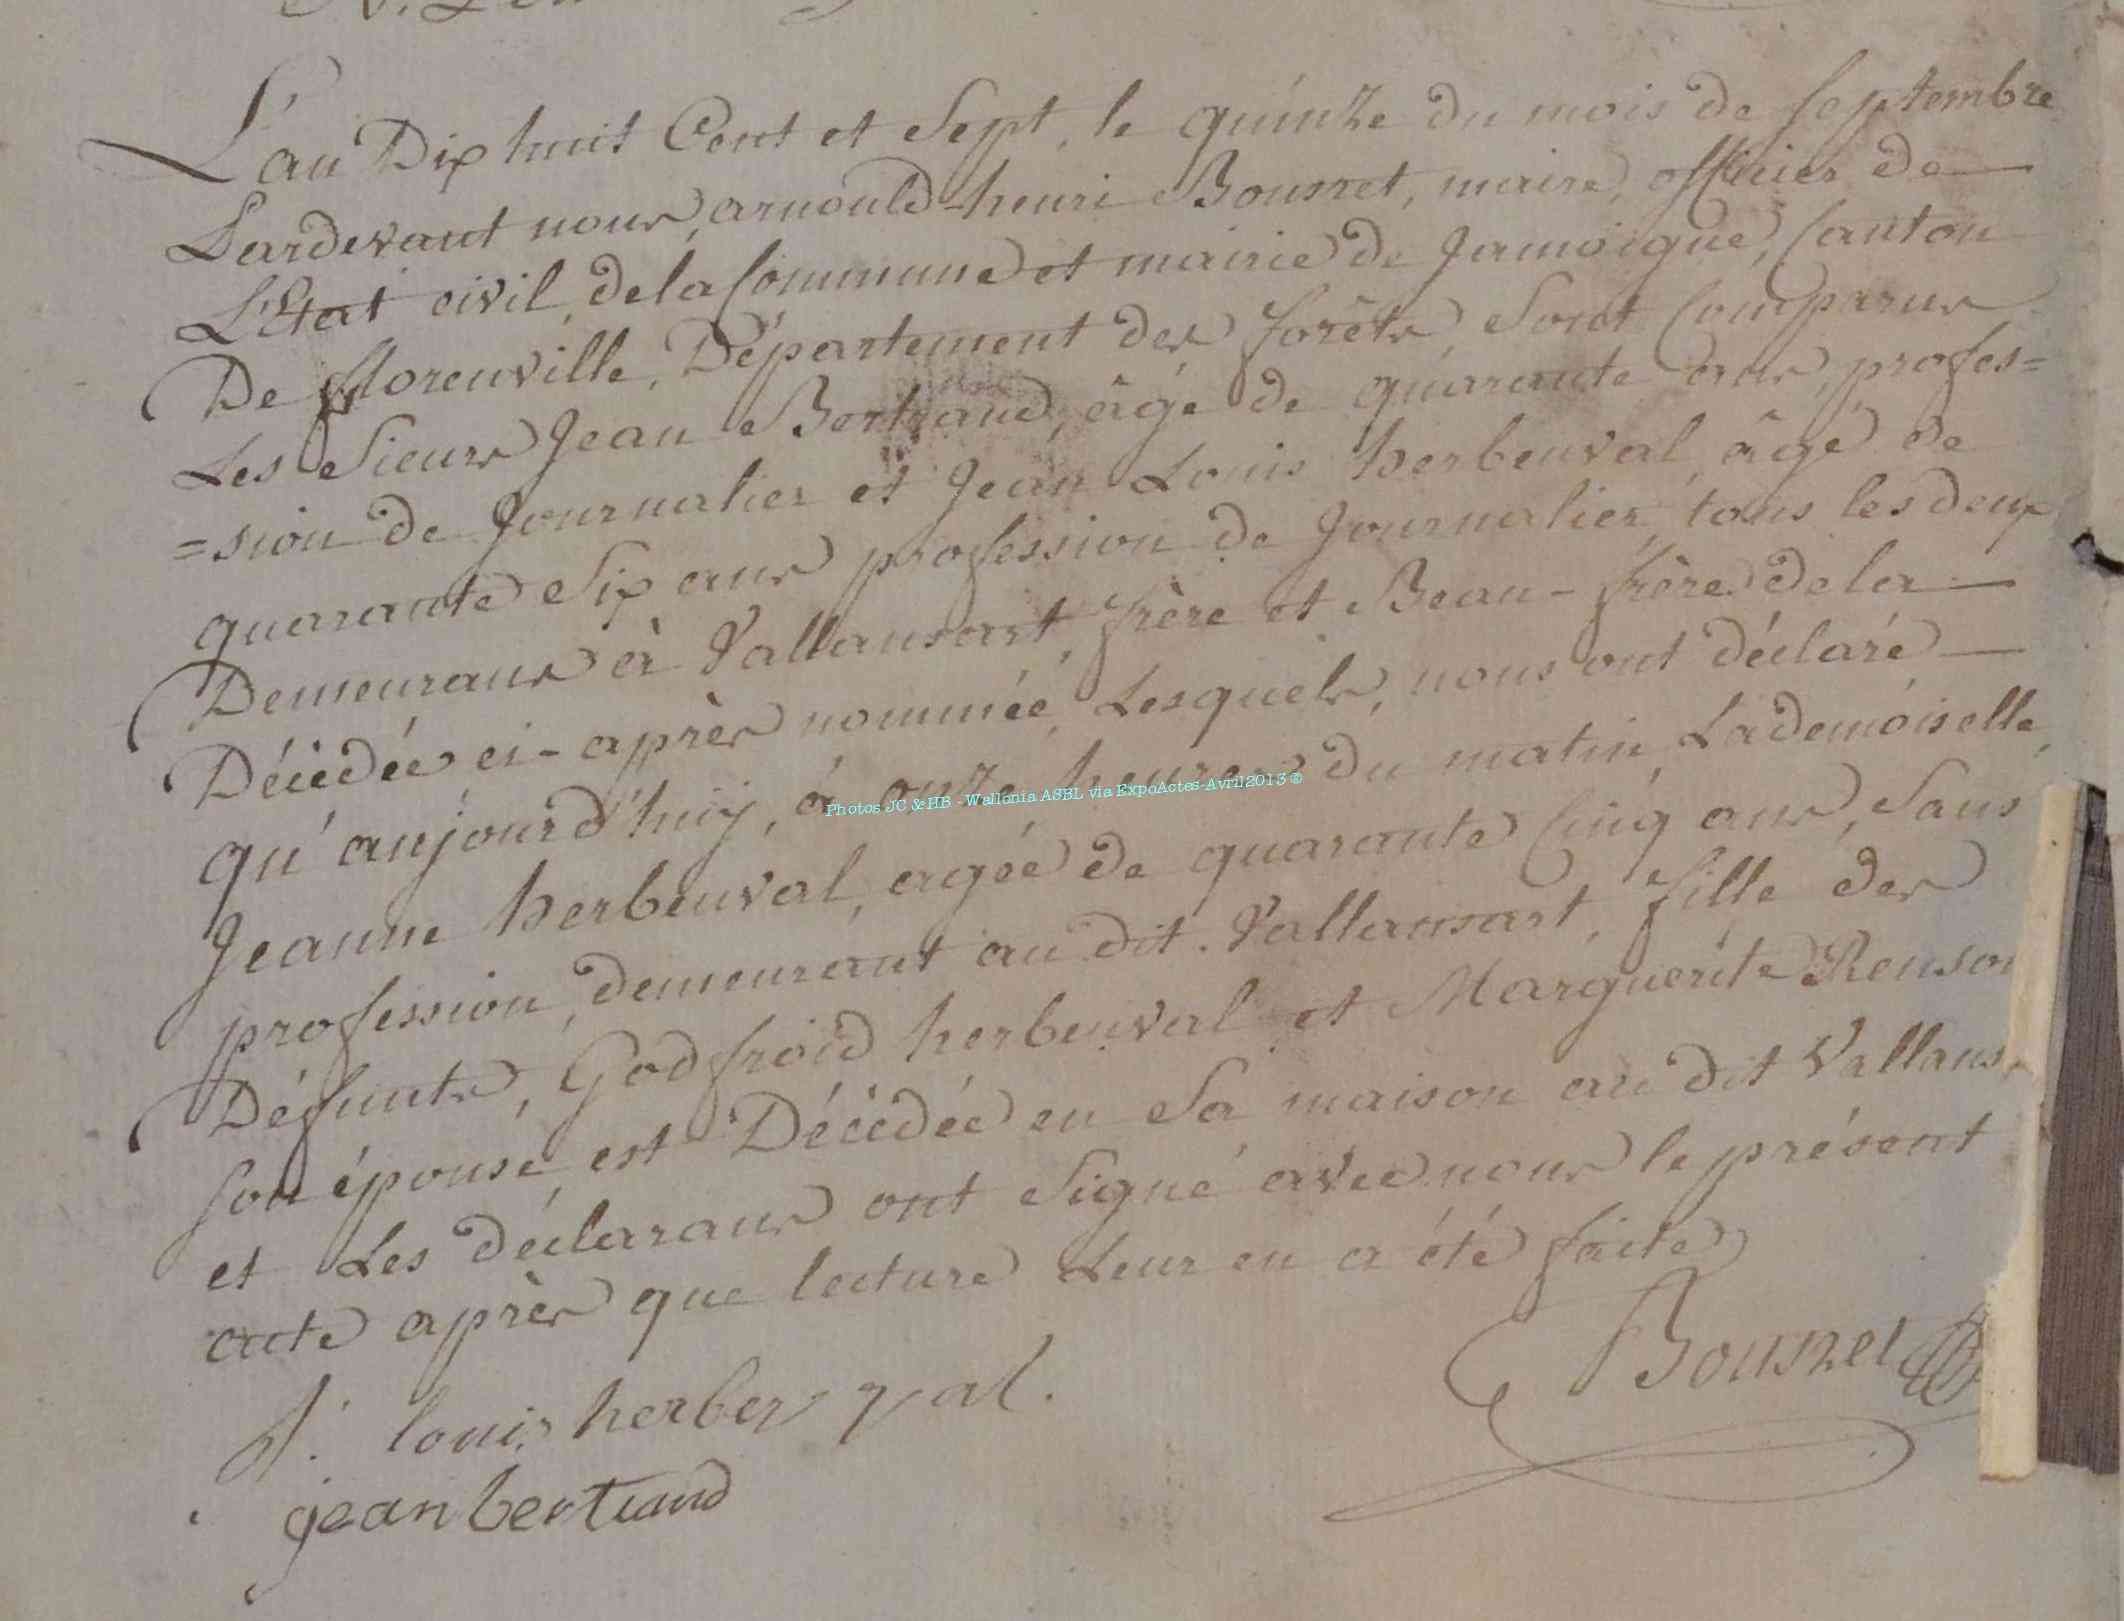 L'an Dix huit Cent et Sept, le quinze du mois de septembre
Pardevant nous, arnould-henri Bousret, maire, officier de
L'Etat civil, de la Commune et mairie de Jamoigne, Canton
De florenville, Département des forêts, Sont Comparus
Les Sieurs Jean Bertrand, âgé de quarante ans, profes=
=sion de Journalier et Jean Louis herbeuval, âgé de
quarante Six ans profession de Journalier, tous les deux
Demeurans à Vallansart, frère et Beau-frère de la
Décédée ci-après nommée, Lesquels, nous ont déclaré
qu'aujourd'huÿ, à onze heures du matin, La demoiselle,
Jeanne herbeuval, agée de quarante Cinq ans, Sans
profession, demeurant au dit Vallansart, fille des
Défunts, Godfroid herbeuval et Marguerite Renson
son épouse, est Décédée en Sa maison au dit Vallans
et Les déclarans ont Signé avec nous le présent
acte après que lecture Leur en a été faite
Bousret
J. louis herbeuval.
jean bertrand
Photos JC & HB - Wallonia ASBL via ExpoActes-Avril2013 ©